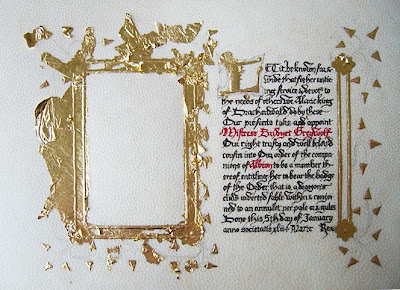 LEt it be known far &
wide that for her untir
ing service & devot to
the needs of others We Alaric King
of Drachenwald do by these
Our presents take and appoint
Mistress Bridget Greywolf
Our right trusty and well beloved
cousin into Our order of the compa
nions of Albion to be a member th
ereof entitling her to bear the badge
of the Order that is a dragon's
child inverted sable within & conjoi
ned to an annulet per pale & gules
Done this 5th day of January
anno societatis xliii Alaric Rex